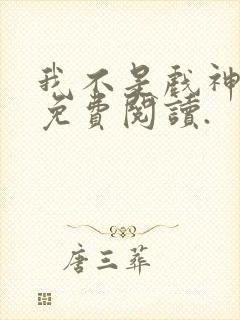 我不是戲神
免費閱讀.
唐三葬